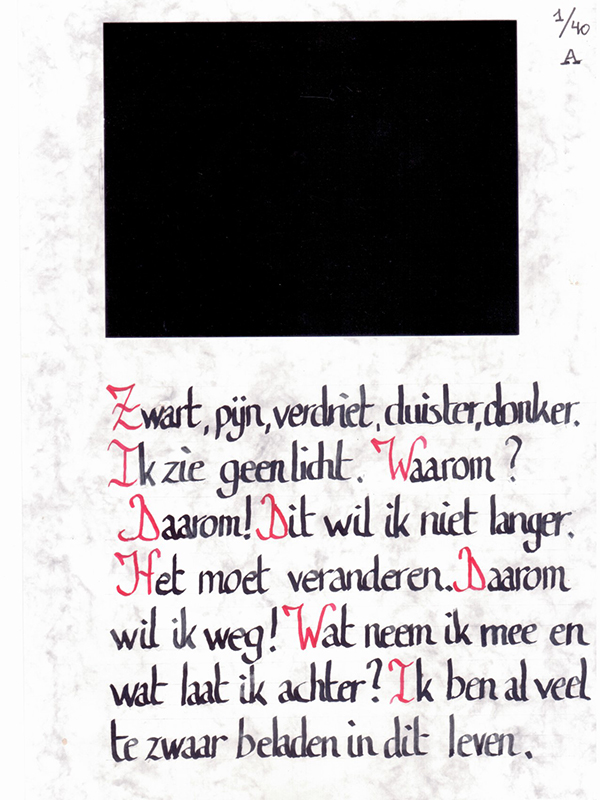 1/40
A
Zwart, pijn, verdriet, duister, donker.
Ik zie geen licht. Waarom?
Daarom! Dit wil ik niet langer.
Het moet veranderen. Daarom
wil ik weg! Wat neem ik mee en
wat laat ik achter? Ik ben al veel
te zwaar beladen in dit leven.